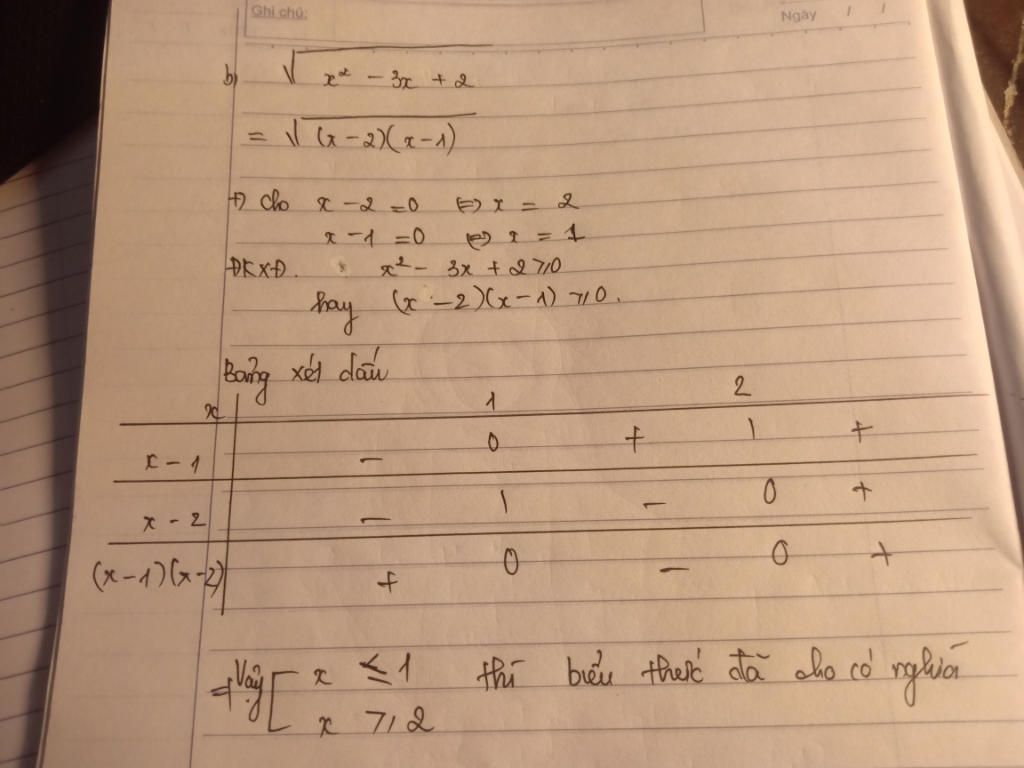 Ghi chú:
Ngày / /
b) √(x² - 3x + 2)
= √((x-2)(x-1))
+) Cho x - 2 = 0 ⇔ x = 2
x - 1 = 0 ⇔ x = 1
ĐKXĐ. x² - 3x + 2 ≥ 0
hay (x - 2)(x - 1) ≥ 0.
Bảng xét dấu
x 1 2
x - 1 - 0 + | +
x - 2 - | - 0 +
(x-1)(x-2) + 0 - 0 +
⇒ Vậy [ x ≤ 1 thì biểu thức đã cho có nghĩa
x ≥ 2